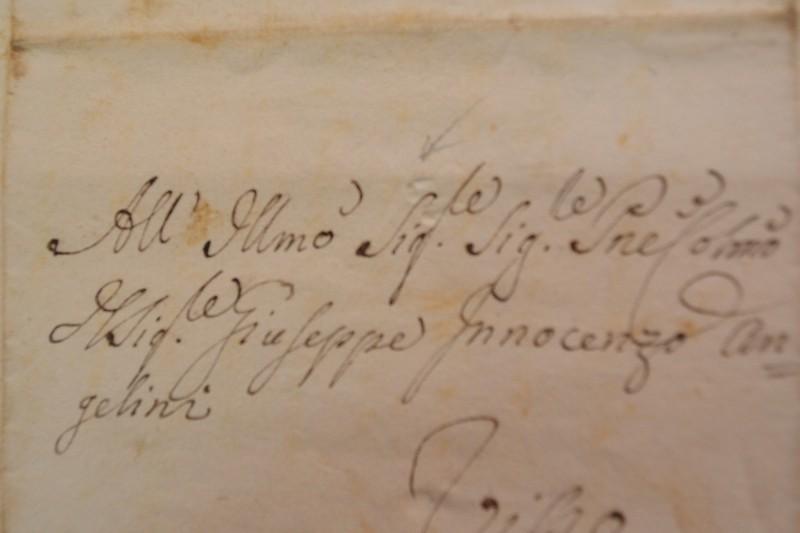 All' Illmo Sig.re Sig.re Pne Colmo
Il Sig.re Giuseppe Innocenzo An=
gelini